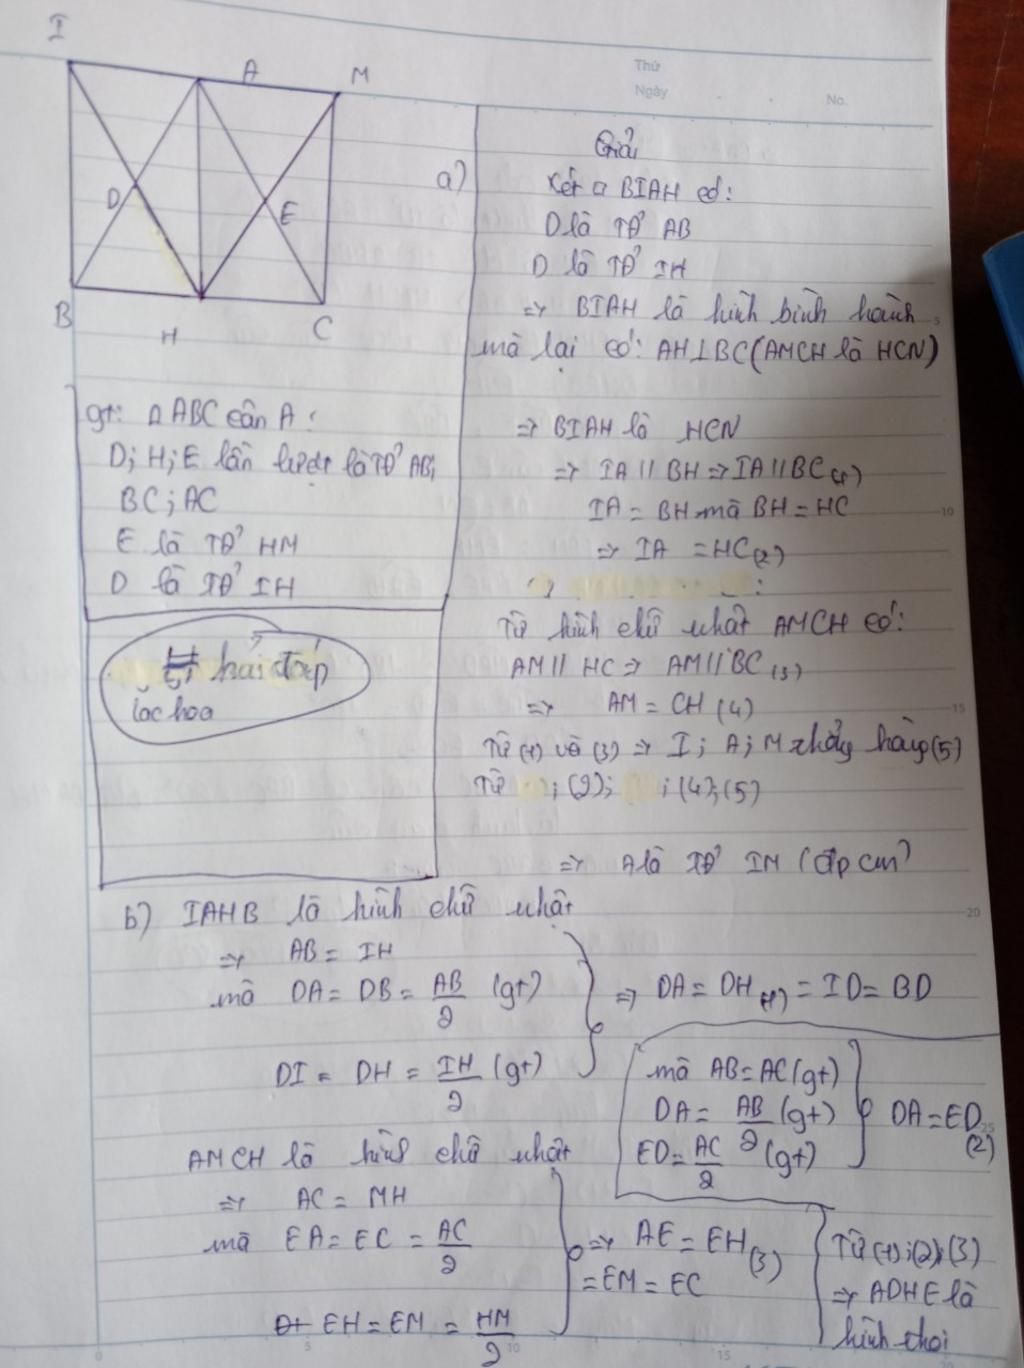 I
A
M
D
E
B
H
C
Thứ
Ngày
No.
a)
Giải
Xét □ BIAH có:
D là TĐ' AB
D là TĐ' IH
=> BIAH là hình bình hành
mà lại có: AH⊥BC (AMCH là HCN)
=> BIAH là HCN
=> IA // BH => IA // BC (1)
IA = BH mà BH = HC
=> IA = HC (2)
Từ hình chữ nhật AMCH có:
AM // HC => AM // BC (3)
=> AM = CH (4)
Từ (1) và (3) => I; A; M thẳng hàng (5)
Từ ; (2); ; (4); (5)
=> A là TĐ' IM (đpcm)
gt: △ABC cân A:
D; H; E lần lượt là TĐ' AB;
BC; AC
E là TĐ' HM
D là TĐ' IH
hỏi đáp
lạc hoa
b) IAHB là hình chữ nhật
=> AB = IH
mà DA = DB = AB/2 (gt)
DI = DH = IH/2 (gt)
=> DA = DH (1) = ID = BD
mà AB = AC (gt)
DA = AB/2 (gt)
ED = AC/2 (gt)
DA = ED (2)
AMCH là hình chữ nhật
=> AC = MH
mà EA = EC = AC/2
EH = EM = HM/2
=> AE = EH (3)
= EM = EC
Từ (1); (2); (3)
=> ADHE là
hình thoi
5
10
15
20
25
0
5
10
15